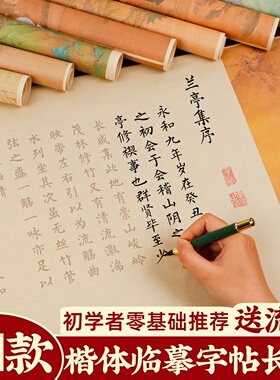 兰亭集序
永和九年岁在癸丑
之初会于会稽山阴之
亭修禊事也群贤毕至少
长咸集此地有崇山峻岭
茂林修竹又有清流激
映带左右引以为流觞曲
水列坐其次虽无丝竹管
弦之盛一觞一咏亦足以
初学者零基础推荐 送流
款 楷体临摹字帖长